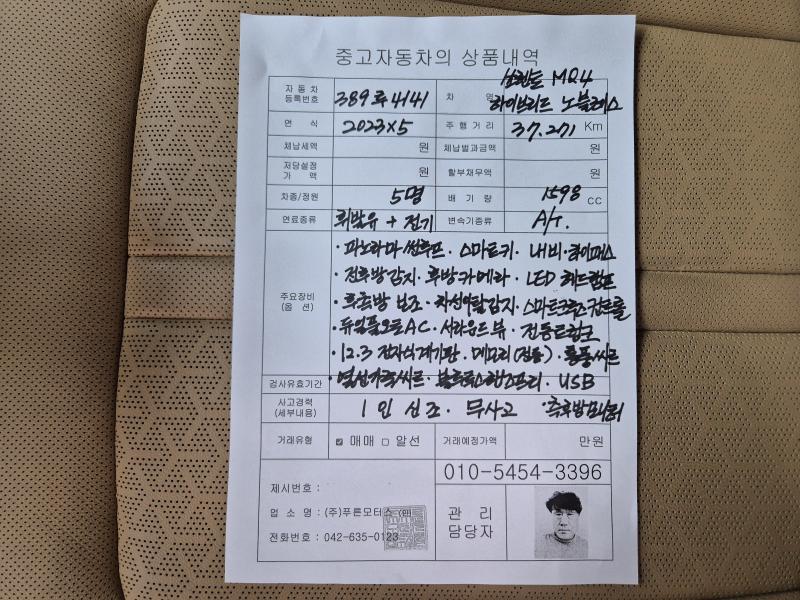 중고자동차의 상품내역
자동차 등록번호 389루4141 차 명 쏘렌토 MQ4 하이브리드 노블레스
연 식 2023×5 주행거리 37.271 Km
체납세액 원 체납범과금액 원
저당설정 가 액 원 할부채무액 원
차종/정원 5명 배 기 량 1598 CC
연료종류 휘발유 + 전기 변속기종류 A/T.
주요장비 (옵 션)
· 파노라마썬루프 · 스마트키 · 내비 · 하이패스
· 전후방감지 · 후방카메라 · LED 헤드램프
· 후측방 보조 · 차선이탈감지 · 스마트크루즈컨트롤
· 듀얼풀오토AC · 서라운드뷰 · 전동트렁크
· 12.3 전자식계기판 · 메모리(전동) · 통풍씨트
· 열선가죽씨트 · 블루투스핸즈프리 · USB
검사유효기간
사고경력 (세부내용) 1인 신조 · 무사고 · 측후방모니터
거래유형 ☑ 매매 □ 알선 거래예정가액 만원
010-5454-3396
제시번호 :
업 소 명 : (주)푸른모터스
전화번호 : 042-635-0123
관 리 담당자